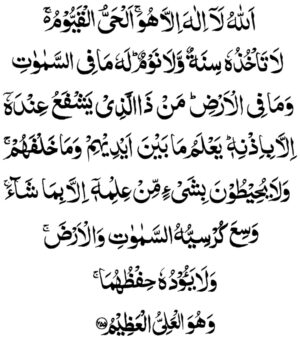 اَللّٰهُ لَاۤ اِلٰهَ اِلَّا هُوَۚ اَلْحَیُّ الْقَیُّوْمُ ۚ۬
لَا تَاْخُذُهٗ سِنَةٌ وَّلَا نَوْمٌؕ لَهٗ مَا فِی السَّمٰوٰتِ
وَمَا فِی الْاَرْضِؕ مَنْ ذَا الَّذِیْ یَشْفَعُ عِنْدَهٗۤ
اِلَّا بِاِذْنِهٖؕ یَعْلَمُ مَا بَیْنَ اَیْدِیْهِمْ وَمَا خَلْفَهُمْۚ
وَلَا یُحِیْطُوْنَ بِشَیْءٍ مِّنْ عِلْمِهٖۤ اِلَّا بِمَا شَآءَۚ
وَسِعَ كُرْسِیُّهُ السَّمٰوٰتِ وَالْاَرْضَۚ
وَلَا یَـُٔوْدُهٗ حِفْظُهُمَاۚ
وَهُوَ الْعَلِیُّ الْعَظِیْمُ ۝۲۵۵